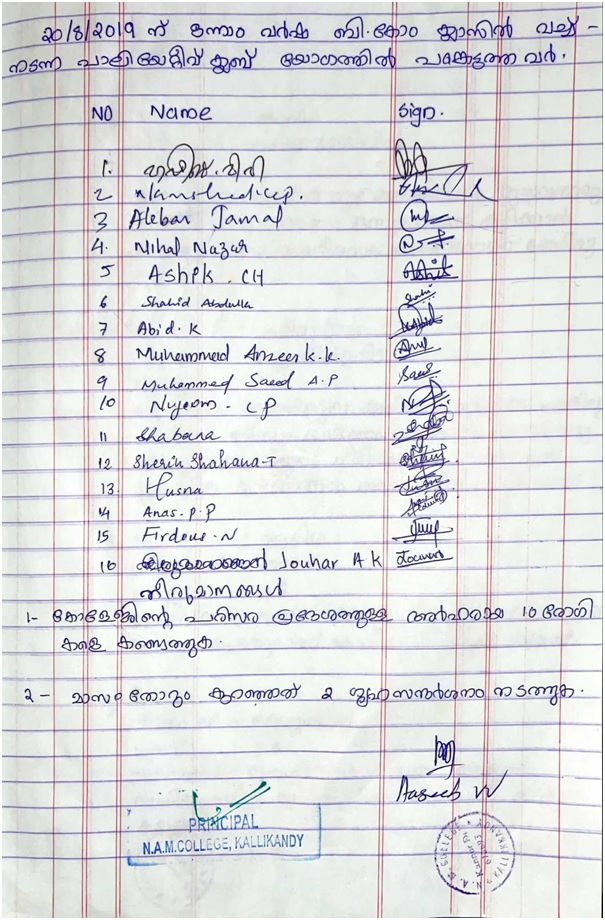 20/8/2019 ന് ഒന്നാം വർഷ ബി.കോം ക്ലാസിൽ വച്ച് -
നടന്ന പാലിയേറ്റീവ് ക്ലബ് യോഗത്തിൽ പങ്കെടുത്തവർ.
NO Name Sign.
1.
2
3 Alebar Jamal
4. Nihal Nazar
5 Ashik. CH
6 Shahid Abdulla
7 Abid. K
8 Muhammed Anzeer k.k.
9 Muhammed Saeed A.P
10 Nujoom. C P
11 Shabana
12 Sherin Shahana-T
13. Husna
14 Anas. P. P
15 Firdous. N
16 Jouhar A K
തീരുമാനങ്ങൾ
1- കോളേജിന്റെ പരിസര പ്രദേശത്തുള്ള അർഹരായ 10 രോഗി
കളെ കണ്ടെത്തുക.
2 - മാസം തോറും കുറഞ്ഞത് 2 ഗൃഹസന്ദർശനം നടത്തുക.
Aaseeb VV
PRINCIPAL
N.A.M.COLLEGE, KALLIKANDY
N. A. M COLLEGE * KALLIKKANDY *